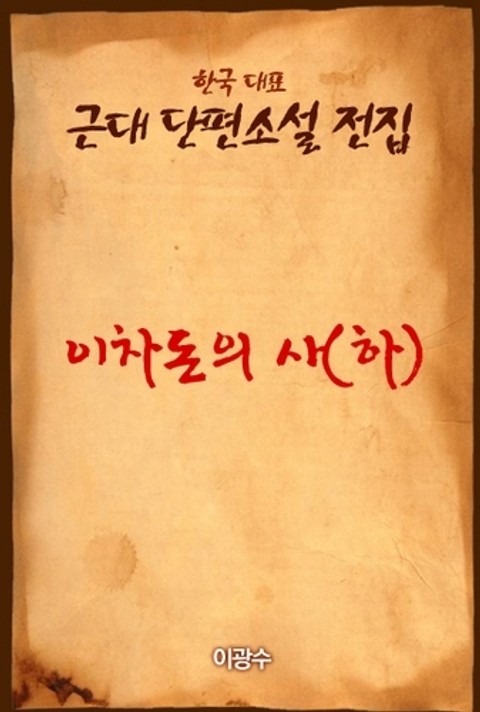 한국 대표
근대 단편소설 전집
이차돈의 사(하)
이광수